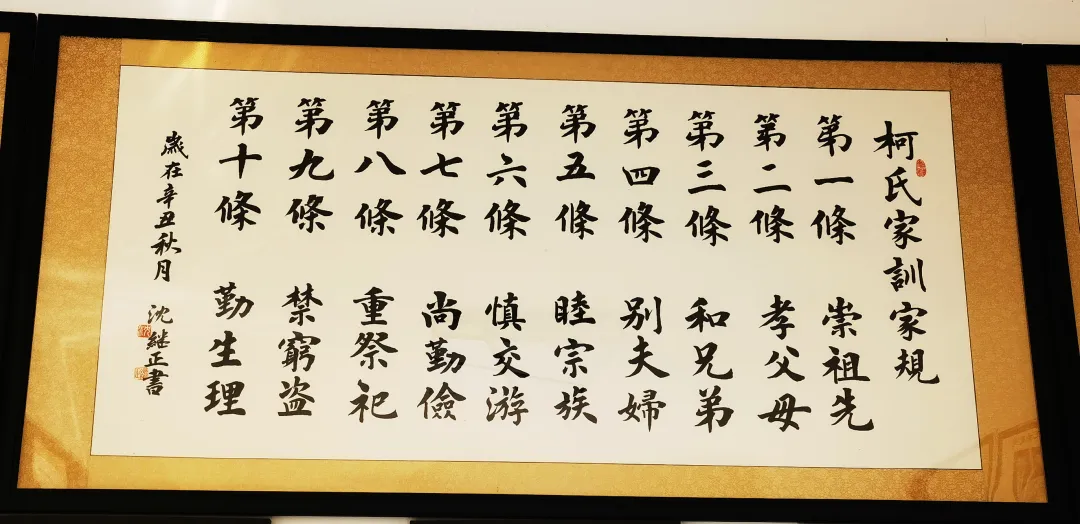 柯氏家訓家規
第一條 崇祖先
第二條 孝父母
第三條 和兄弟
第四條 別夫婦
第五條 睦宗族
第六條 慎交游
第七條 尚勤儉
第八條 重祭祀
第九條 禁窮盗
第十條 勤生理
歲在辛丑秋月 沈继正書